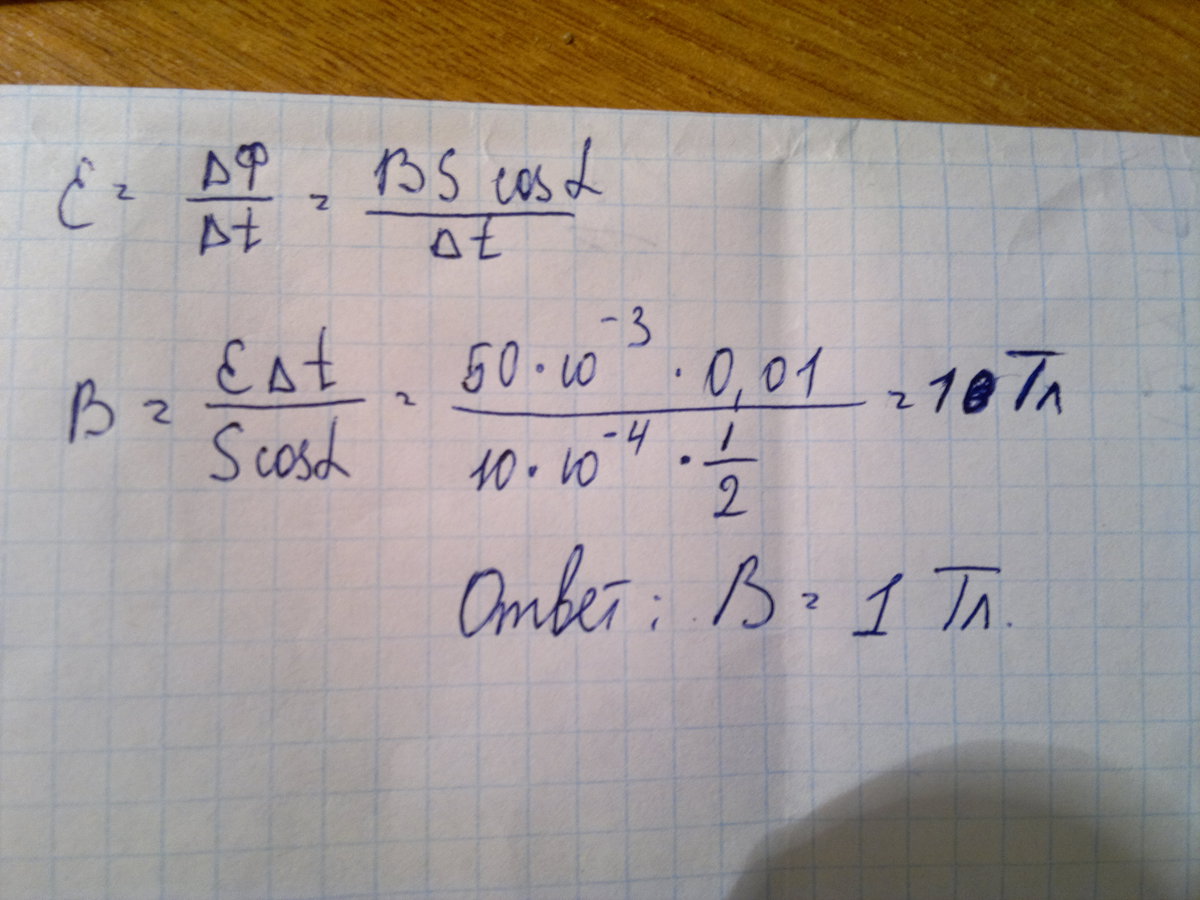 ε = ΔΦ/Δt = BS cosα/Δt
B = εΔt/S cosα = 50·10⁻³ · 0,01/10·10⁻⁴ · 1/2 = 1 Тл
Ответ: B = 1 Тл.